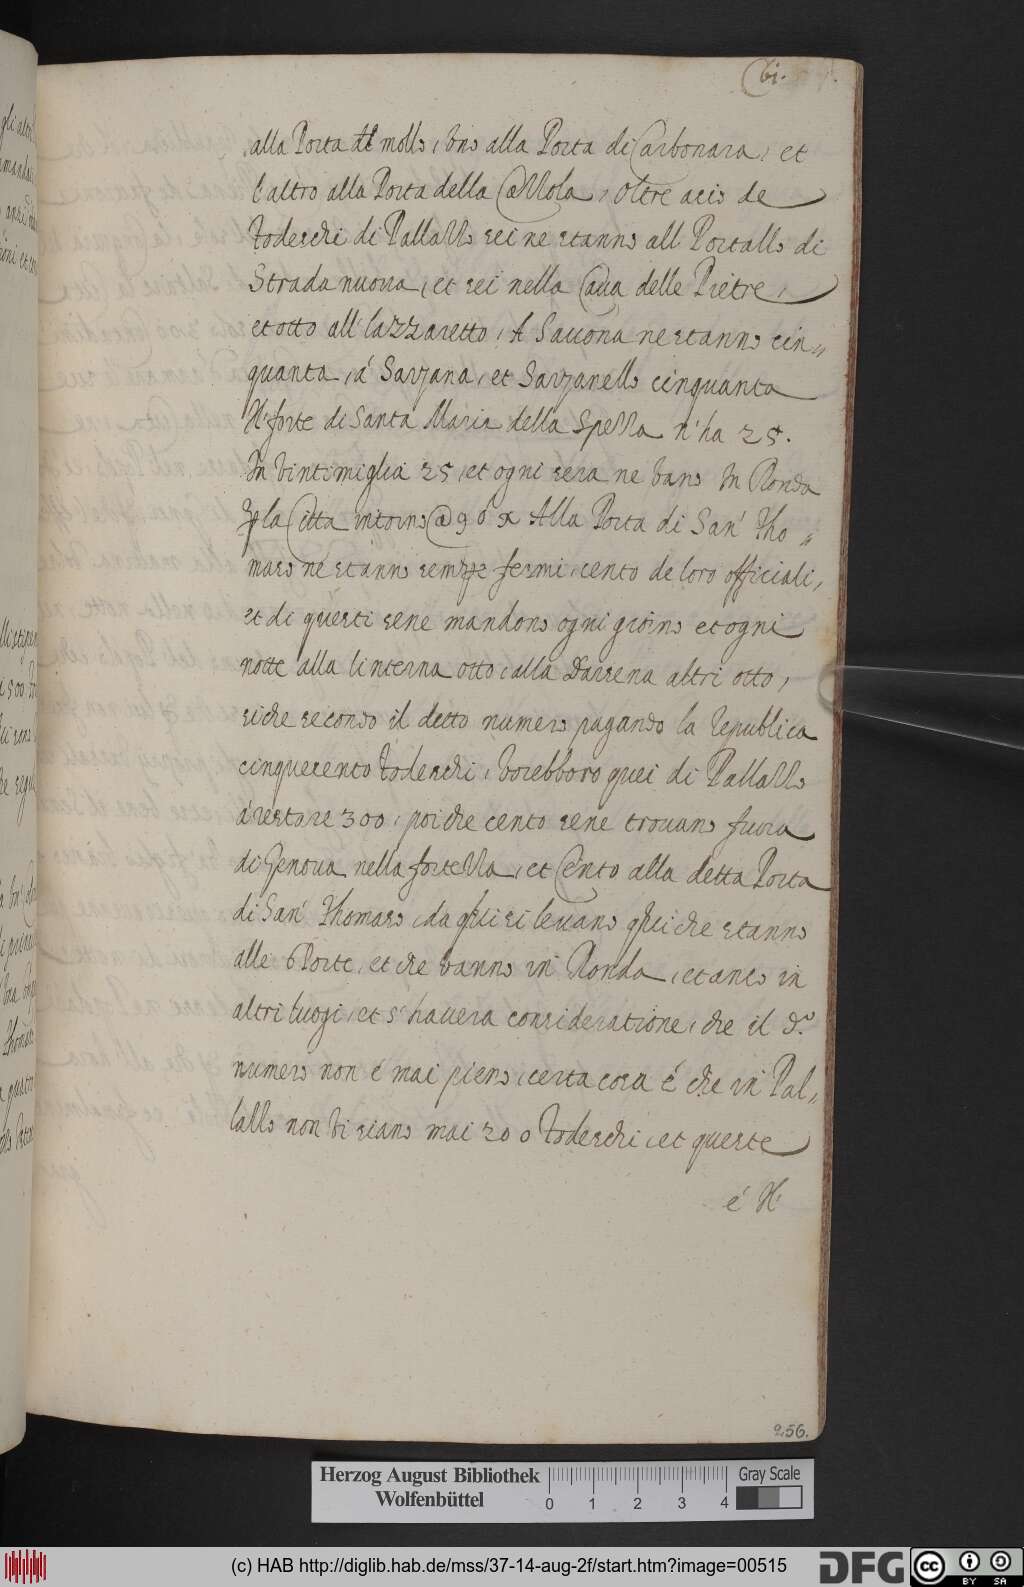 61.
alla Porta del mollo, Uno alla Porta di Carbonara, et
l'altro alla Porta della Cazzola, Oltre acio de
Todeschi di Pallazzo sei ne stanno all Portallo di
Strada nuova, et sei nella Caua delle Pietre,
et otto all lazzaretto, A Sauona ne stanno cin„
quanta, á Sarzana, et Sarzanello cinquanta
Il forte di Santa Maria della Spezza n'ha 25.
In Vintimiglia 25, et ogni sera ne vano In Ronda
la Citta intorno Alla Porta di San Tho„
maso ne stanno sempre fermi, cento de loro officiali,
et di questi sene mandono ogni giorno et ogni
notte alla linterna otto, alla Darsena altri otto,
siche secondo il detto numero pagando la republica
cinquecento Todeschi, Dorebboro quei di Pallazzo
á restare 300, poiche cento sene trouano fuora
di Genoua nella fortezza, et Cento alla detta Porta
di San Thomaso, da q̃lli si leuano q̃lli che stanno
alle Porte, et che vanno in Ronda, et anco in
altri luogi, et s'hauera consideratione, che il d.º
numero non é mai pieno, certa cosa é che in Pal„
lallo non vi siano mai 200 Todeschi, et queste
é Il
256.
gli altri
Herzog August Bibliothek
Wolfenbüttel
0 1 2 3 4
Gray Scale
(c) HAB http://diglib.hab.de/mss/37-14-aug-2f/start.htm?image=00515
DFG
cc BY SA